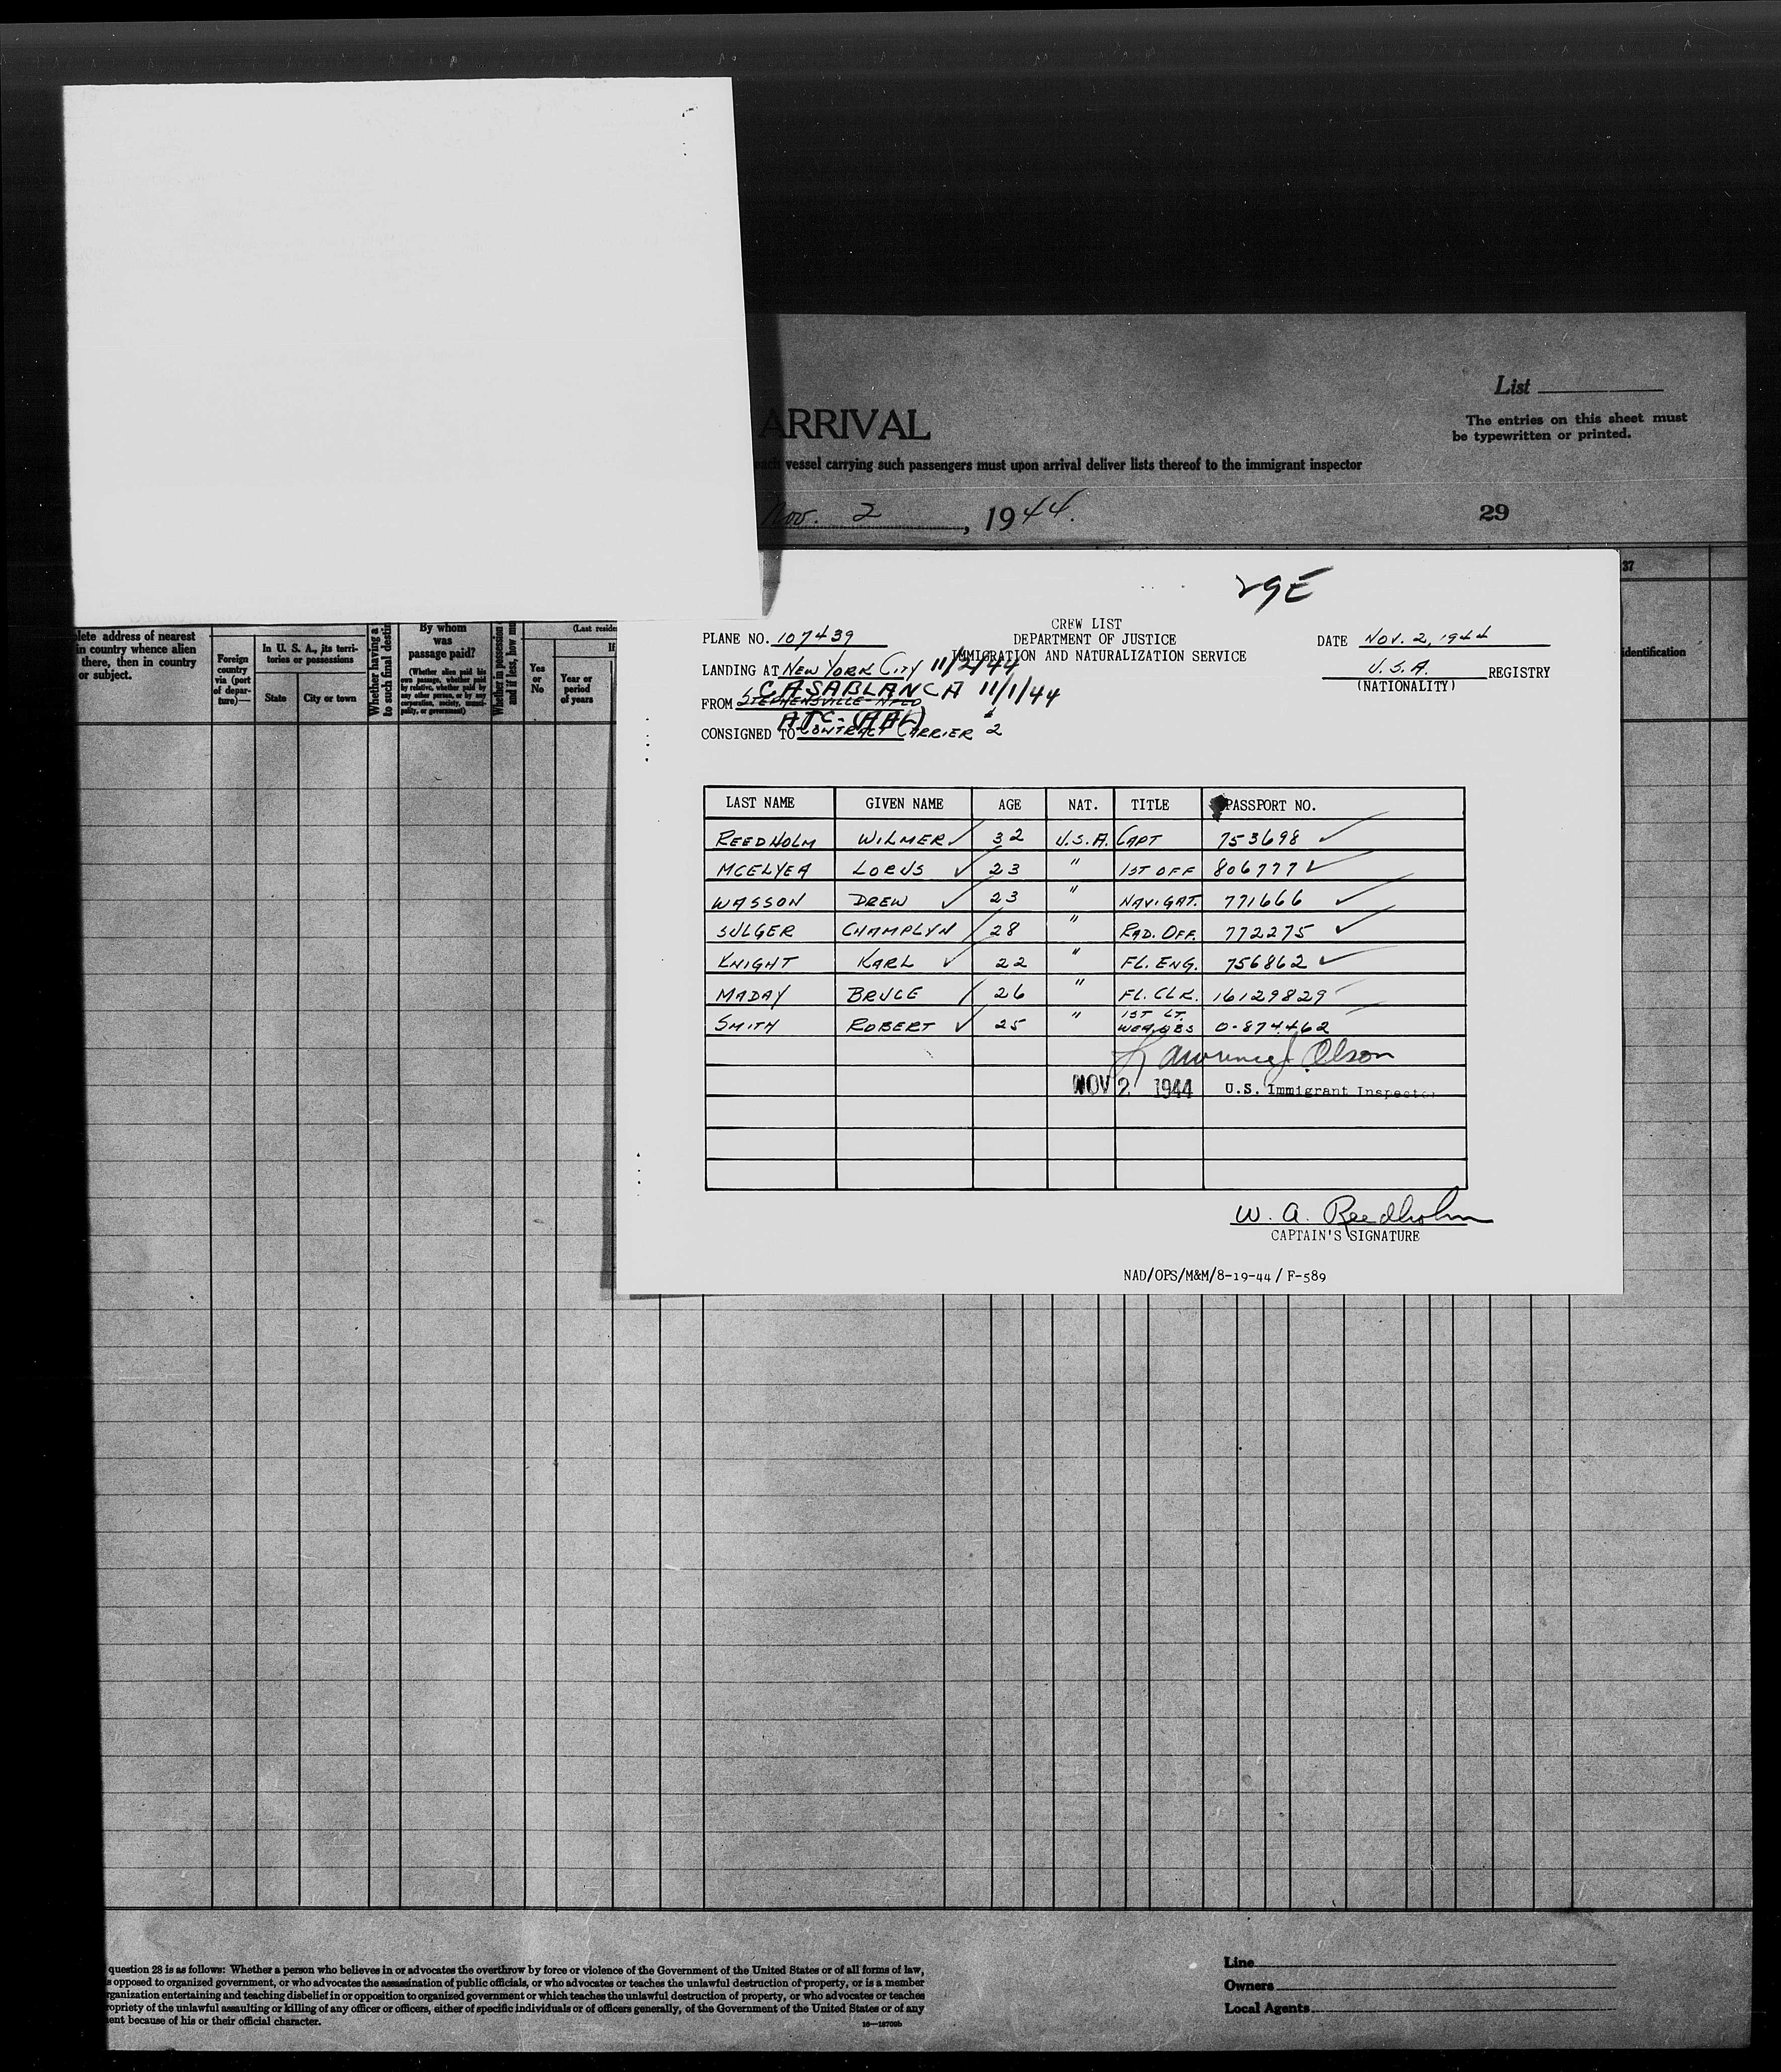 List
ARRIVAL
The entries on this sheet must
be typewritten or printed.
each vessel carrying such passengers must upon arrival deliver lists thereof to the immigrant inspector
Nov. 2, 1944.
29
37
29E
CREW LIST
PLANE NO. 107439 DEPARTMENT OF JUSTICE DATE NOV. 2, 1944
LANDING AT NEW YORK CITY 11/2/44 IMMIGRATION AND NATURALIZATION SERVICE
U.S.A. REGISTRY
(NATIONALITY)
CASABLANCA 11/1/44
FROM STEPHENSVILLE NFLD
ATC- (AAL)
CONSIGNED TO CONTRACT CARRIER #2
LAST NAME GIVEN NAME AGE NAT. TITLE PASSPORT NO.
REEDHOLM WILMER ✓ 32 U.S.A. CAPT 753698 ✓
MCELYEA LORUS ✓ 23 " 1ST OFF 806777 ✓
WASSON DREW ✓ 23 " NAVIGAT. 771666 ✓
SULGER CHAMPLYN / 28 " RAD. OFF. 772275 ✓
KNIGHT KARL ✓ 22 " FL. ENG. 756862 ✓
MADAY BRUCE / 26 " FL. CLK. 16129829
SMITH ROBERT ✓ 25 " 1ST LT. WEA. OBS 0-874462
Lawrence J Olson
NOV 2 1944 U.S. Immigrant Inspector
W. A. Reedholm
CAPTAIN'S SIGNATURE
NAD/OPS/M&M/8-19-44 / F-589
plete address of nearest
in country whence alien
there, then in country
or subject.
Foreign
country
via (port
of depar-
ture)—
In U. S. A., its terri-
tories or possessions
State
City or town
Whether having a
to such final destin
By whom
was
passage paid?
(Whether alien paid his
own passage, whether paid
by relative, whether paid by
any other person, or by any
corporation, society, munici-
pality, or government)
Whether in possession
and if less, how mu
Yes
or
No
(Last reside
If
Year or
period
of years
identification
question 28 is as follows: Whether a person who believes in or advocates the overthrow by force or violence of the Government of the United States or of all forms of law,
s opposed to organized government, or who advocates the assassination of public officials, or who advocates or teaches the unlawful destruction of property, or is a member
rganization entertaining and teaching disbelief in or opposition to organized government or which teaches the unlawful destruction of property, or who advocates or teaches
ropriety of the unlawful assaulting or killing of any officer or officers, either of specific individuals or of officers generally, of the Government of the United States or of any
ent because of his or their official character.
16—18709b
Line
Owners
Local Agents